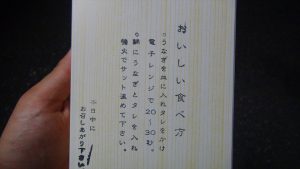 おいしい食べ方
○うなぎを皿に入れタレをかけ
電子レンジで20〜30秒。
○鍋にうなぎとタレを入れ
強火でサット温めて下さい。
本日中に
お召しあがり下さい